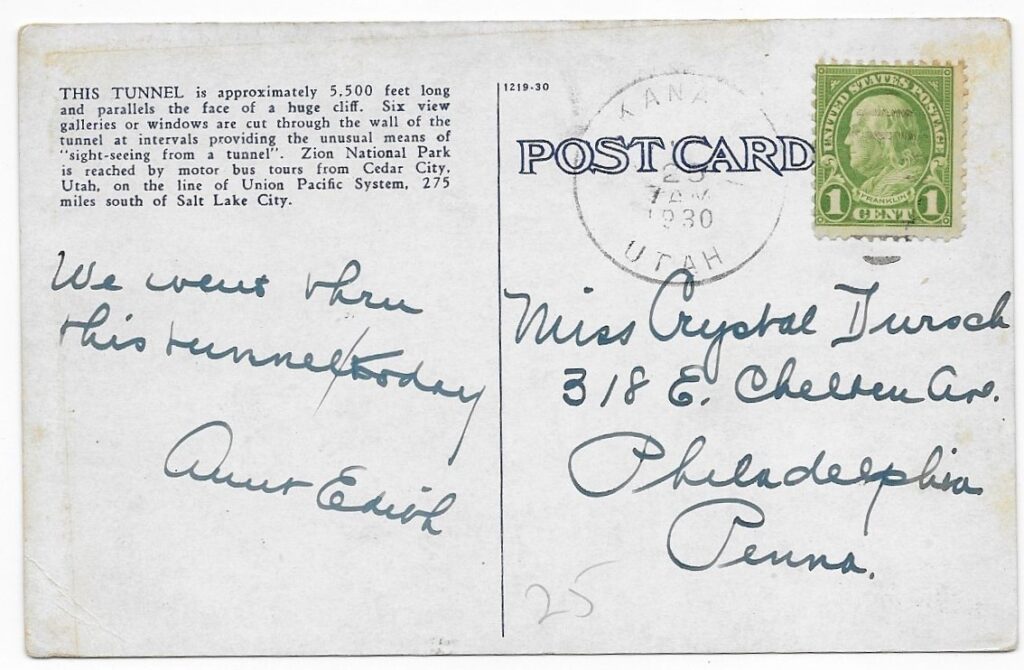 THIS TUNNEL is approximately 5,500 feet long
and parallels the face of a huge cliff. Six view
galleries or windows are cut through the wall of the
tunnel at intervals providing the unusual means of
"sight-seeing from a tunnel". Zion National Park
is reached by motor bus tours from Cedar City,
Utah, on the line of Union Pacific System, 275
miles south of Salt Lake City.
We went thru
this tunnel today
Aunt Edith
1219-30
POST CARD
KANA
7 AM
1930
UTAH
UNITED STATES POSTAGE
FRANKLIN
1 CENT 1
Miss Crystal Dursch
318 E. Chelten Av.
Philadelphia
Penna.
25